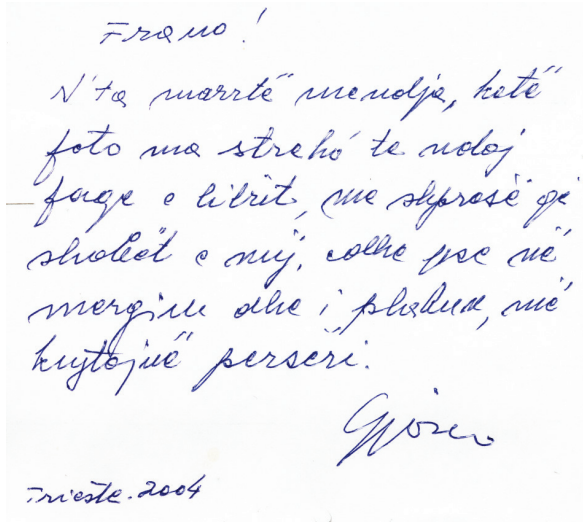 Frano!
N'ta marrtë mendja, ketë
foto ma strehó te ndoj
faqe e librit, me shpresë që
shokët e mij, edhe pse në
mergim dhe i plakun, më
kujtojnë perseri.
Trieste. 2004